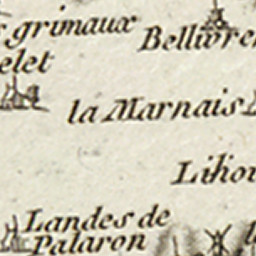 grimaux
Bellivre
elet
la Marnais
Lihou
Landes de
Palaron